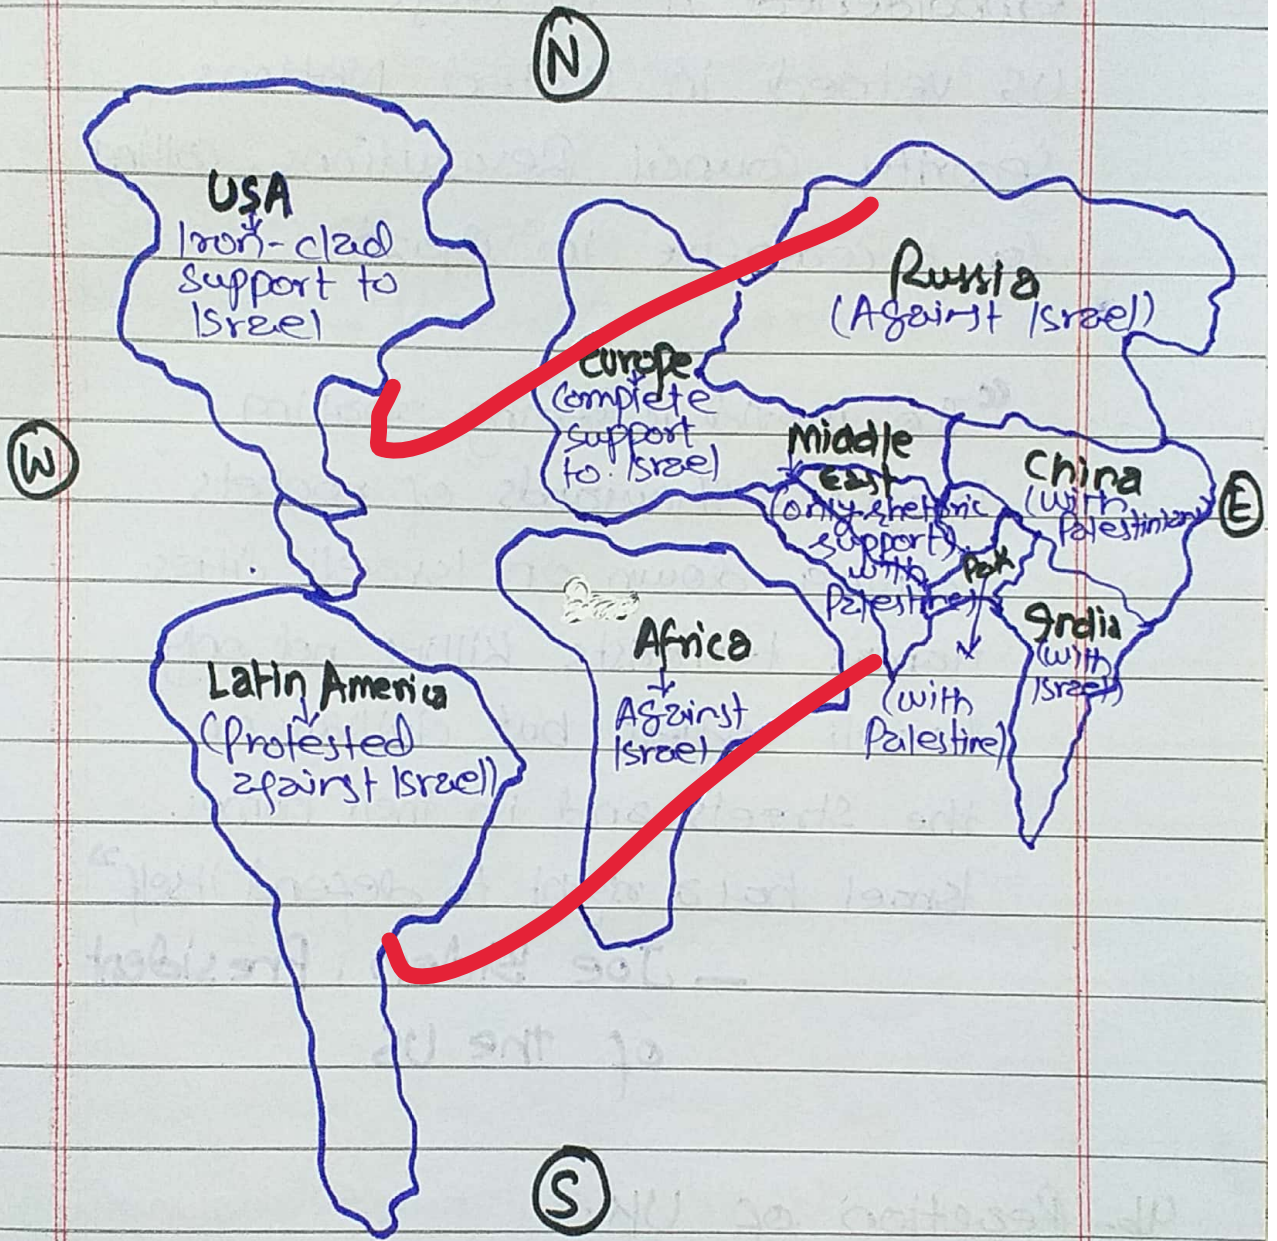 N
USA
Iron-clad
support to
Israel
Russia
(Against Israel)
Europe
Complete
support
to Israel
W
Middle
East
(only rhetoric
support)
with
Palestine)
China
(with
Palestinian)
E
Pak
(with
Palestine)
India
(with
Israel)
Africa
Against
Israel
Latin America
(Protested
against Israel)
S